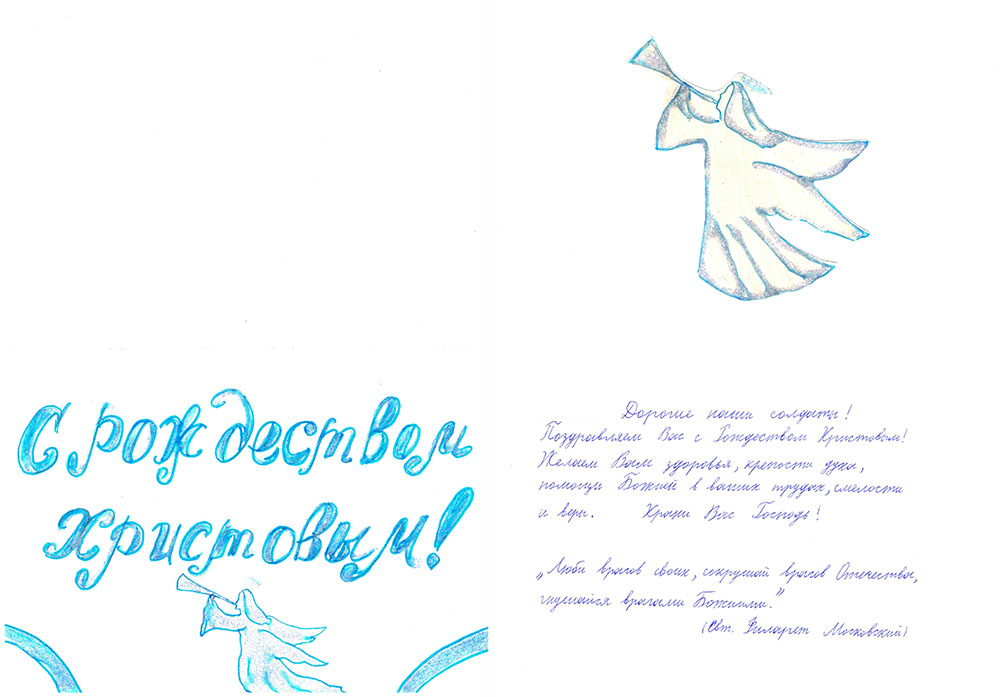 С рождеством
христовым!
Дорогие наши солдаты!
Поздравляем Вас с Рождеством Христовым!
Желаем Вам здоровья, крепости духа,
помощи Божией в ваших трудах, смелости
и веры. Храни Вас Господь!
„Люби врагов своих, сокрушай врагов Отечества,
гнушайся врагами Божиими."
(Свт. Филарет Московский)